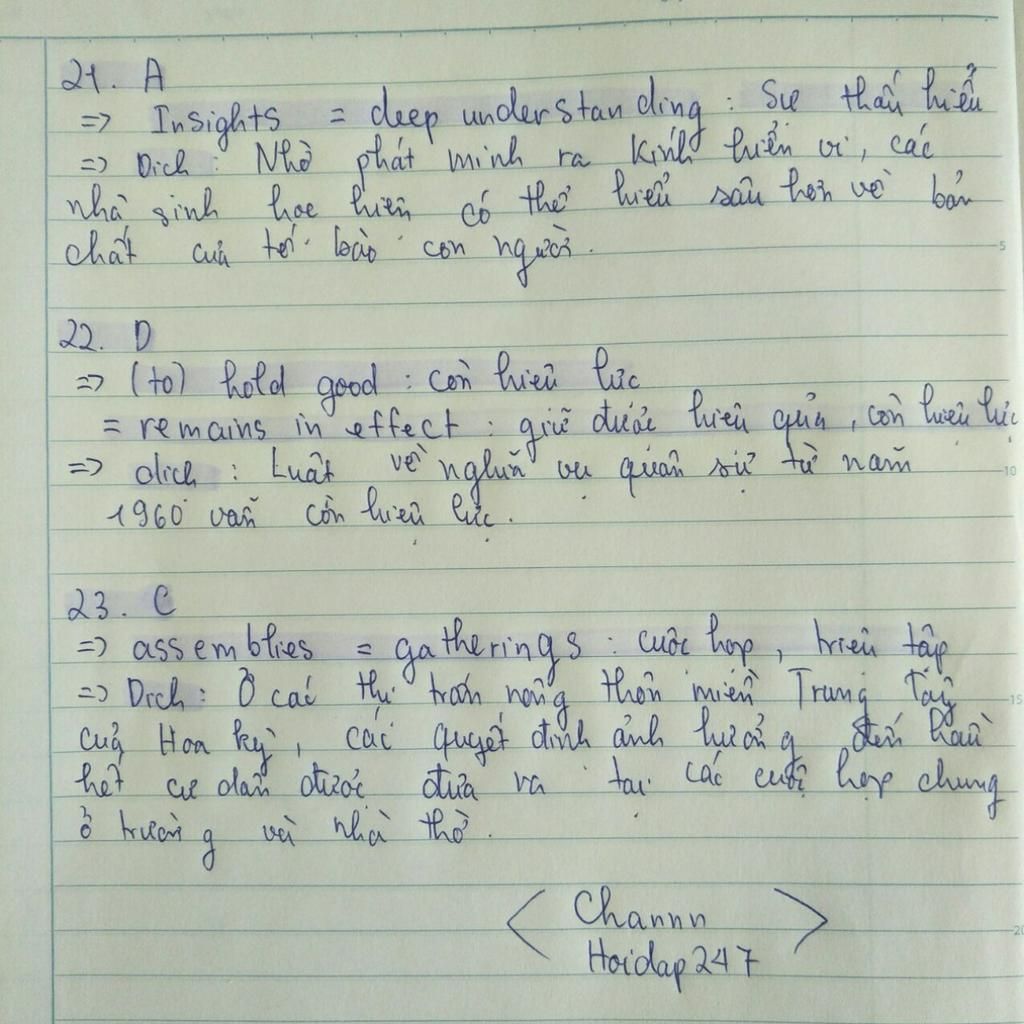 21. A
=> Insights = deep understanding : Sự thấu hiểu
=> Dịch : Nhờ phát minh ra kính hiển vi, các
nhà sinh học hiện có thể hiểu sâu hơn về bản
chất của tế bào con người.
22. D
=> (to) hold good : còn hiệu lực
= remains in effect : giữ được hiệu quả, còn hiệu lực
=> dịch : Luật về nghĩa vụ quân sự từ năm
1960 vẫn còn hiệu lực.
23. C
=> assemblies = gatherings : cuộc họp, triệu tập
=> Dịch : Ở các thị trấn nông thôn miền Trung Tây
của Hoa kỳ, các quyết định ảnh hưởng đến hầu
hết cư dân được đưa ra tại các cuộc họp chung
ở trường và nhà thờ.
< Channn >
Hoidap247
5
10
15
20